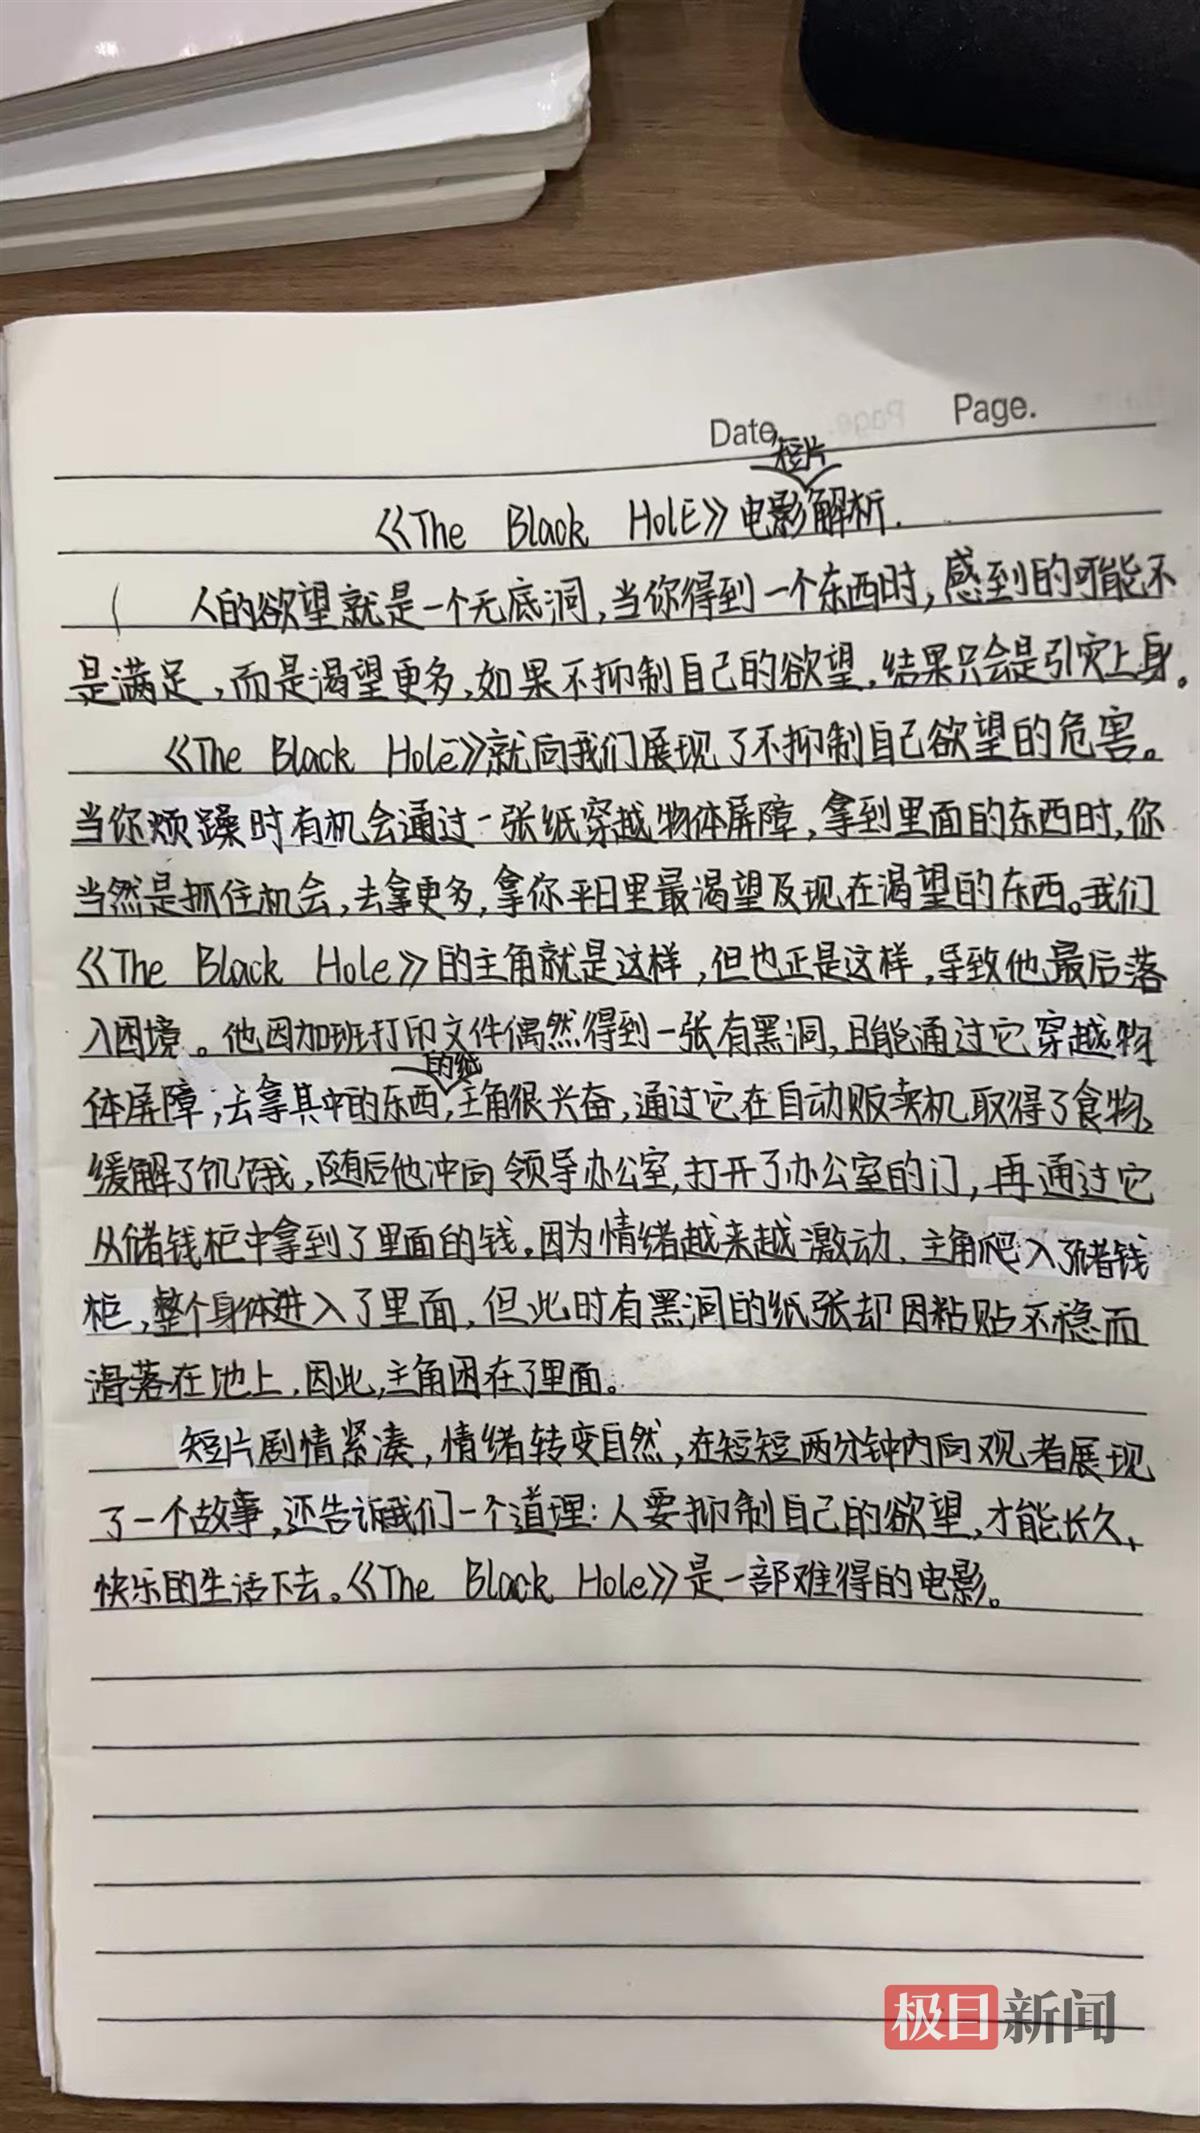 Date. Page.
短片
《The Black HolE》电影解析.
人的欲望就是一个无底洞,当你得到一个东西时,感到的可能不
是满足,而是渴望更多,如果不抑制自己的欲望,结果只会是引灾上身。
《The Black Hole》就向我们展现了不抑制自己欲望的危害。
当你烦躁时有机会通过一张纸穿越物体屏障,拿到里面的东西时,你
当然是抓住机会,去拿更多,拿你平日里最渴望及现在渴望的东西。我们
《The Black Hole》的主角就是这样,但也正是这样,导致他最后落
入困境。他因加班打印文件偶然得到一张有黑洞,且能通过它穿越物
的纸
体屏障,去拿其中的东西,主角很兴奋,通过它在自动贩卖机取得了食物,
缓解了饥饿,随后他冲向领导办公室,打开了办公室的门,再通过它
从储钱柜中拿到了里面的钱。因为情绪越来越激动,主角爬入了储钱
柜,整个身体进入了里面,但此时有黑洞的纸张却因粘贴不稳而
滑落在地上,因此,主角困在了里面。
短片剧情紧凑,情绪转变自然,在短短两分钟内向观者展现
了一个故事,还告诉我们一个道理:人要抑制自己的欲望,才能长久、
快乐的生活下去。《The Black Hole》是一部难得的电影。
极目新闻